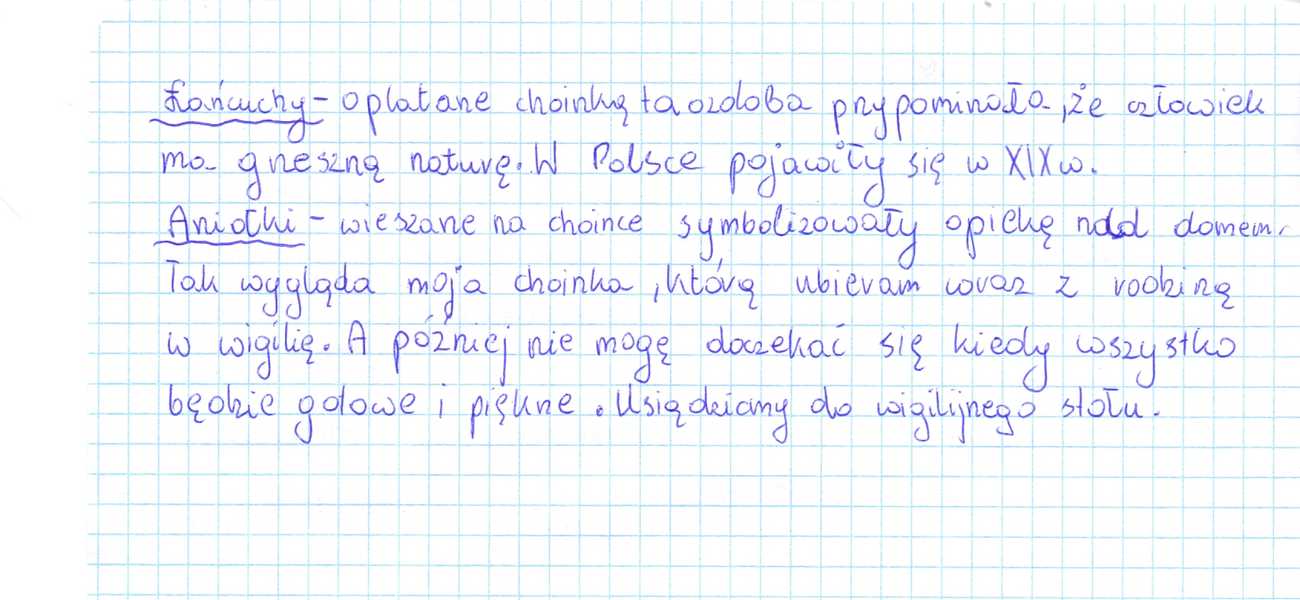 Łańcuchy - oplatane choinkę ta ozdoba przypominała, że człowiek
ma grzeszną naturę. W Polsce pojawiły się w XIX w.
Aniołki - wieszane na choince symbolizowały opiekę nad domem.
Tak wygląda moja choinka, którą ubieram wraz z rodziną
w wigilię. A później nie mogę doczekać się kiedy wszystko
będzie gotowe i piękne. Usiądziemy do wigilijnego stołu.